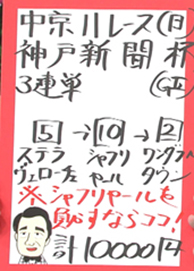 中京11レース(日)
神戸新聞杯
3連単 (GⅡ)
5→10→2
ステラ シャフリ ワンダフル
ヴェローチェ ヤール タウン
※シャフリヤールを
負かすならココ!
計10000円